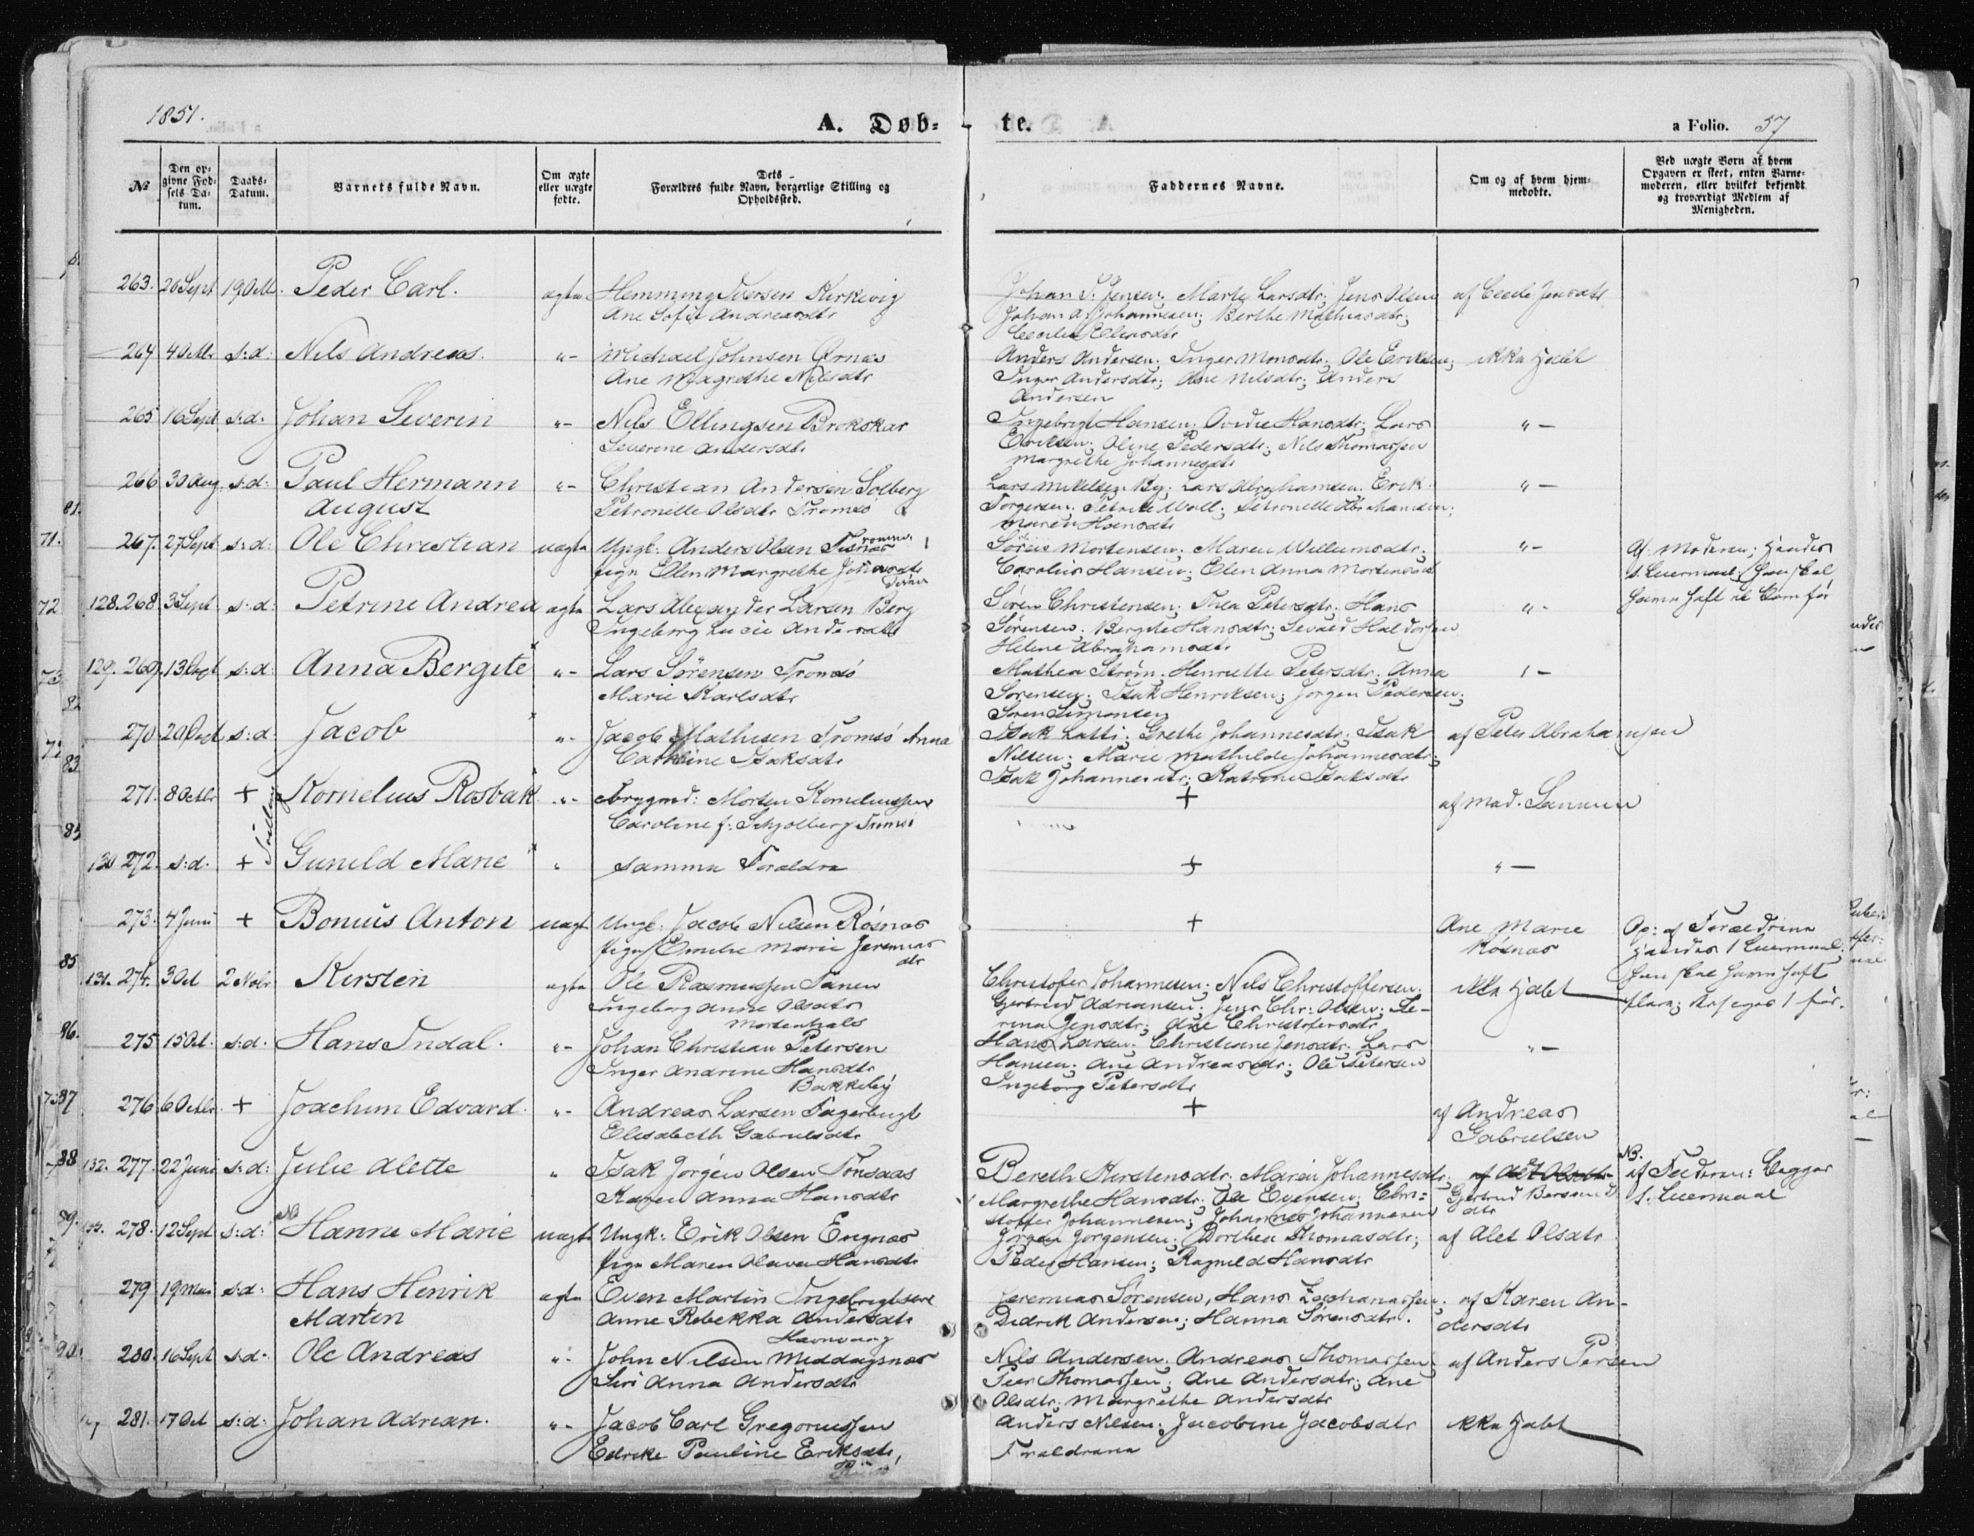 1851.
A. Døb-
te.
a Folio. 57
№
Den opgivne Fødsels Datum.
Daabs-Datum.
Barnets fulde Navn.
Om ægte eller uægte fødte.
Dets Forældres fulde Navn, borgerlige Stilling og Opholdssted.
Faddernes Navne.
Om og af hvem hjemmedøbte.
Ved uægte Børn af hvem Opgaven er skeet, enten Barnemoderen, eller hvilket bekjendt og troværdigt Medlem af Menigheden.
263. 20 Sept 19 Octbr. Peder Carl. ægte Hemming Iversen Kirkevig
Ane Sofie Andreasdtr
Johan P. Jensen; Marte Larsdtr; Jens Olsen af Cecile Jensdtr
Johan A. Johannesen; Berthe Mathiasdtr;
Cecilie Eliasdtr
264 4 Octbr s:d: Nils Andreas. "- Michael Johnsen Ørnæs
Ane Margrethe Nilsdtr
Anders Andersen; Inger Monsdtr; Ole Eriksen; ikke hjdbt
Inger Andersdtr; Ane Nilsdtr; Anders
Andersen
265 16 Sept s:d: Johan Severin "- Nils Ellingsen Brokskar
Severine Andersdtr
Ingebrigt Hansen; Ovidie Hansdtr; Lars "-
Eriksen; Oline Pedersdtr; Nils Thomassen
Margrethe Johannesdtr
266 30 Aug s:d: Paul Hermann "- Christian Andersen Solberg
August Petronelle Olsdtr Tromsø
Lars Mikelsen By; Lars Abrahamsen; Erik "-
Torgersen; Petrike Moll; Petronelle Abrahamsen;
Maren Hansdtr
267. 27 Sept s:d: Ole Christian uægte Ungk: Anders Olsen Tisnæs
Pige Ellen Margrethe Johansdtr
Søren Mortensen; Maren Willumsdtr; "-
Carolius Hansen; Elen Anna Mortensdtr
Af Moderen; hendes
1. Leiermaal; han skal
have haft et Barn før
128. 268. 3 Sept s:d: Petrine Andrea ægte Lars Alexander Larsen Berg
Ingeborg Lucie Andersdtr
Søren Christensen; Thea Petersdtr; Hans "-
Sørensen; Bergite Hansdtr; Sivard Haldorsen
Helene Abrahamsdtr
129. 269. 13 Sept s:d: Anna Bergite "- Lars Sörensen Tromsö
Marie Karlsdtr
Mathea Strøm; Henriette Petersdtr; Anna "-
Sørensen; Isak Henriksen; Jørgen Pedersen;
Søren Simonsen
270 20 Sept s:d: Jacob "- Jacob Mathisen Tromsö Anna
Cathrine Isaksdtr
Isak Latti; Grethe Johannesdtr; Isak af Peter Abrahamsen
Nilsen; Marie Mathilde Johannesdtr;
Isak Johannesen; Katrine Isaksdtr
271. 8 Octbr + Kornelius Rosbak "- Brygmd: Morten Korneliussen
Caroline f: Schjolberg Tromsö
+ af Mad. Sannun
Tvillinger
130 272. s:d. + Gunild Marie " samme Forældre
+ "-
273. 4 Juni + Bonius Anton uægt Ungk: Jacob Nilsen Rösnæs
Pige Emelie Marie Jeremiasdtr
+ Ane Marie
Røsnæs
Op: af Forældrene
hendes 1 Leiermaal
han skal have haft
flere; tilegnes 1 før.
131. 274. 3 Oct 2 Novbr Kirsten ægte Ole Rasmussen Sanen
Ingeborg Anne Olsdtr
Mortenhals
Christofer Johannesen; Nils Christoffersen; ikke hjdbt
Gjertrud Adriansen; Jens Chr: Olsen; Se-
rina Jensdtr; Ane Christofersdtr
275. 15 Oct. s:d. Hans Indal. "- Johan Christian Petersen
Inger Andrine Hansdtr
Bakkeby
Hans Larsen; Christiane Jensdtr; Lars "-
Hansen; Ane Andreasdtr; Ole Petersen
Ingeborg Petersdtr
276 6 Octbr + Joachim Edvard. "- Andreas Larsen Fagerbugt
Elisabeth Gabrielsdtr
+ af Andreas
Gabrielsen
132. 277. 22 Juni s:d: Julie Alette " Isak Jörgen Olsen Tønsaas
Karen Anna Hansdtr
Bereth Kirstensdtr; Maren Johannesdtr;
Margrethe Hansdtr; Ole Evensen; Chri-
stoffer Johannesen; Johannes Johannesen
Gjertrud Berentsdtr
NB. af Fæderen: Begges
1. Leiermaal
133. 278. 12 Sept s:d: Hanne Marie uægt Ungk: Erik Olsen Engnæs
Pige Maren Olava Hansdtr
Jörgen Jorgensen; Dorthea Thomasdtr; af Alet Olsdtr
Peder Hansen; Ragnild Hansdtr
279 19 Mai s:d: Hans Henrik ægte Even Martin Ingebrigtsen
Marten Anne Rebekka Andersdtr
Havnvaag
Jeremias Sörensen, Hans Zachariassen; af Karen An-
Didrik Andersen; Hanna Sörensdtr. dersdtr
280. 16 Sept s:d. Ole Andreas "- John Nilsen Middagsnæs
Siri Anna Andersdtr
Nils Andersen; Andreas Thomassen; af Anders Persen
Peer Thomassen; Ane Andersdtr; Ane
Olsdtr; Margrethe Andersdtr
281. 17 Oct s:d: Johan Adrian. "- Jacob Carl Gregoriussen
Edrike Pauline Eriksdtr,
Anders Nilsen; Jacobine Jacobsdtr ikke hjdbt
Forældrene